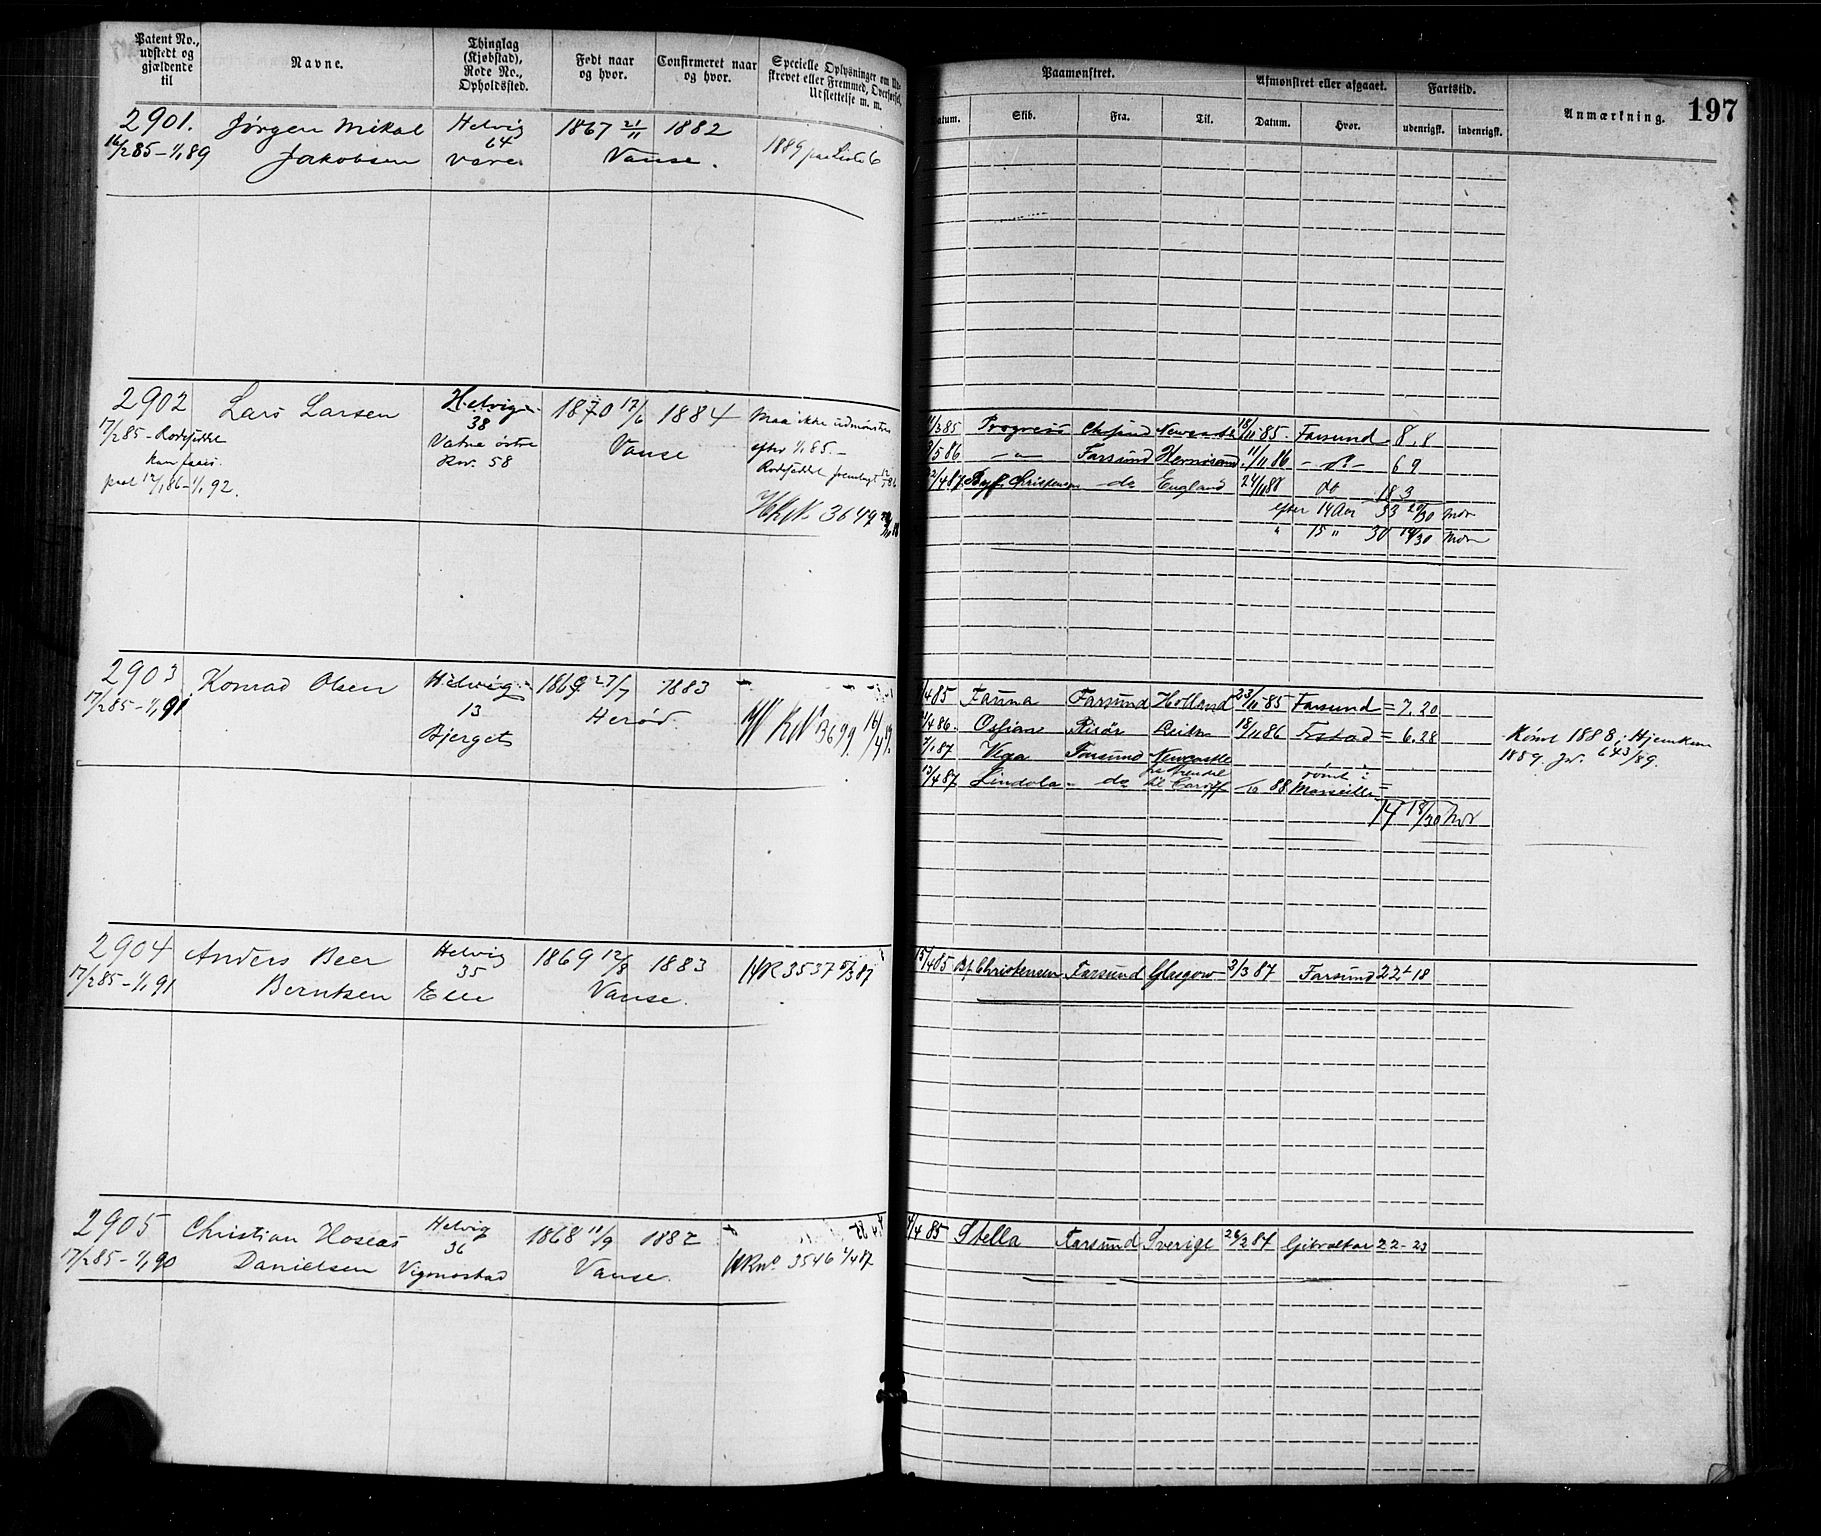 Patent No.,
udstedt og
gjældende
til
Navne.
Thinglag
(Kjøbstad),
Rode No.,
Opholdssted.
Født naar
og hvor.
Confirmeret naar
og hvor.
Specielle Oplysninger om
strevet eller Fremmed, Overførsel,
Udslettelse m. m.
2901. Jørgen Mikal Helvig 1867 21/11 1882
16/2 85 – 1/1 89 Jakobsen 64 Vanse. 1889 paa Liste 6
Vere
2902 Lars Larsen Helvig 1870 17/6 1884 Maa ikke udmønstres
17/2 85 – Rodeseddel 38 Vanse efter 1/1 85. –
Vatne østre Rodeseddel fremlagt
Rw. 58
pool 12/1 86 – 1/1 92.
3647
2903 Konrad Olsen Helvig 1869 27/7 1883
17/2 85 – 1/1 91 13 Herød. 3699 16/4 89.
Bjerget
2904 Anders Beer Helvig 1869 12/8 1883 HR 3537 5/3 87
17/2 85 – 1/1 91 Berntsen 35 Vanse.
Elle
2905 Christian Hoseas Helvig 1868 11/9 1882
17/2 85 – 1/1 90 Danielsen 36 Vanse. 3546 2/4 87
Vigmostad
Paamønstret.
Afmønstret eller afgaaet.
Fartstid.
Anmærkning.
197
Datum.
Skib.
Fra.
Til.
Datum.
Hvor.
udenrigsk.
indenrigsk.
3 85 Progress Newcastle 18/11 85. Farsund 8. 8
5 86 – " – Farsund Hernøsand 11/11 86 – do – 6 9
4 87 Christensen do England 24/11 88 do 18 3
efter 14 Aar 33 20/30 Mdr
" 15 " 30 19/30 Mdr
4 85 Fauna Farsund Holland 23/11 85 Farsund = 7. 20
4 86. Ossian Risør 18/11 86 = 6. 28
1 87 Vega Farsund Newcastle
13/4 87 Lindola do til 88 rømt i Marseille
14 18/30 Mdr
Rømt 1888, Hjemkom
1889. Jr. 643/89.
15/4 85 Bf Christensen Farsund Glasgow 3/3 87 Farsund 22 + 18
4 85 Stella Farsund Sverige 26/2 87 Gibraltar 22 – 23